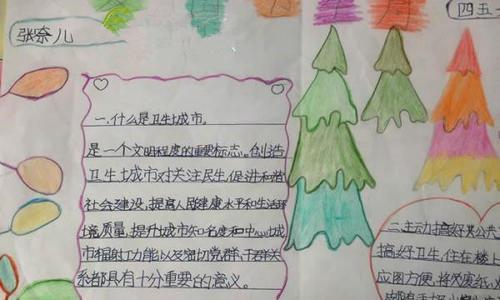 张奈儿
四五
一.什么是卫生城市.
是一个文明程度的重要标志。创造
卫生城市对关注民生,促进和谐
社会建设,提高人民健康水平和生活环
境质量,提升城市知名度和中心城
市辐射功能以及密切党群、干群关
系都具有十分重要的意义。
二.主动搞好公共卫
搞好卫生,住在楼上
应图方便,将废纸、